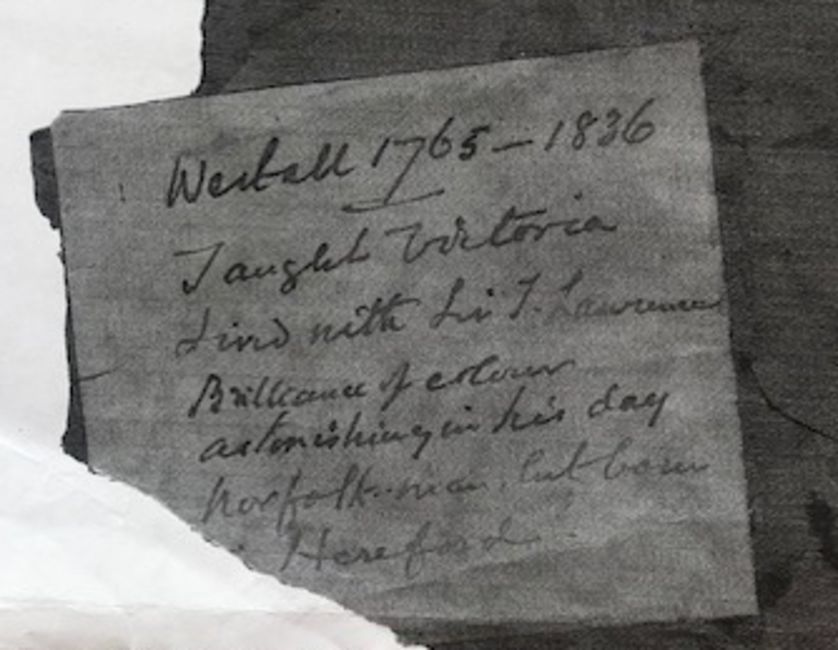 Westall 1765 – 1836
Taught Victoria
Lived with Sir T. Lawrence
Brilliance of colour
astonishing in his day
Norfolk man but born
Hereford